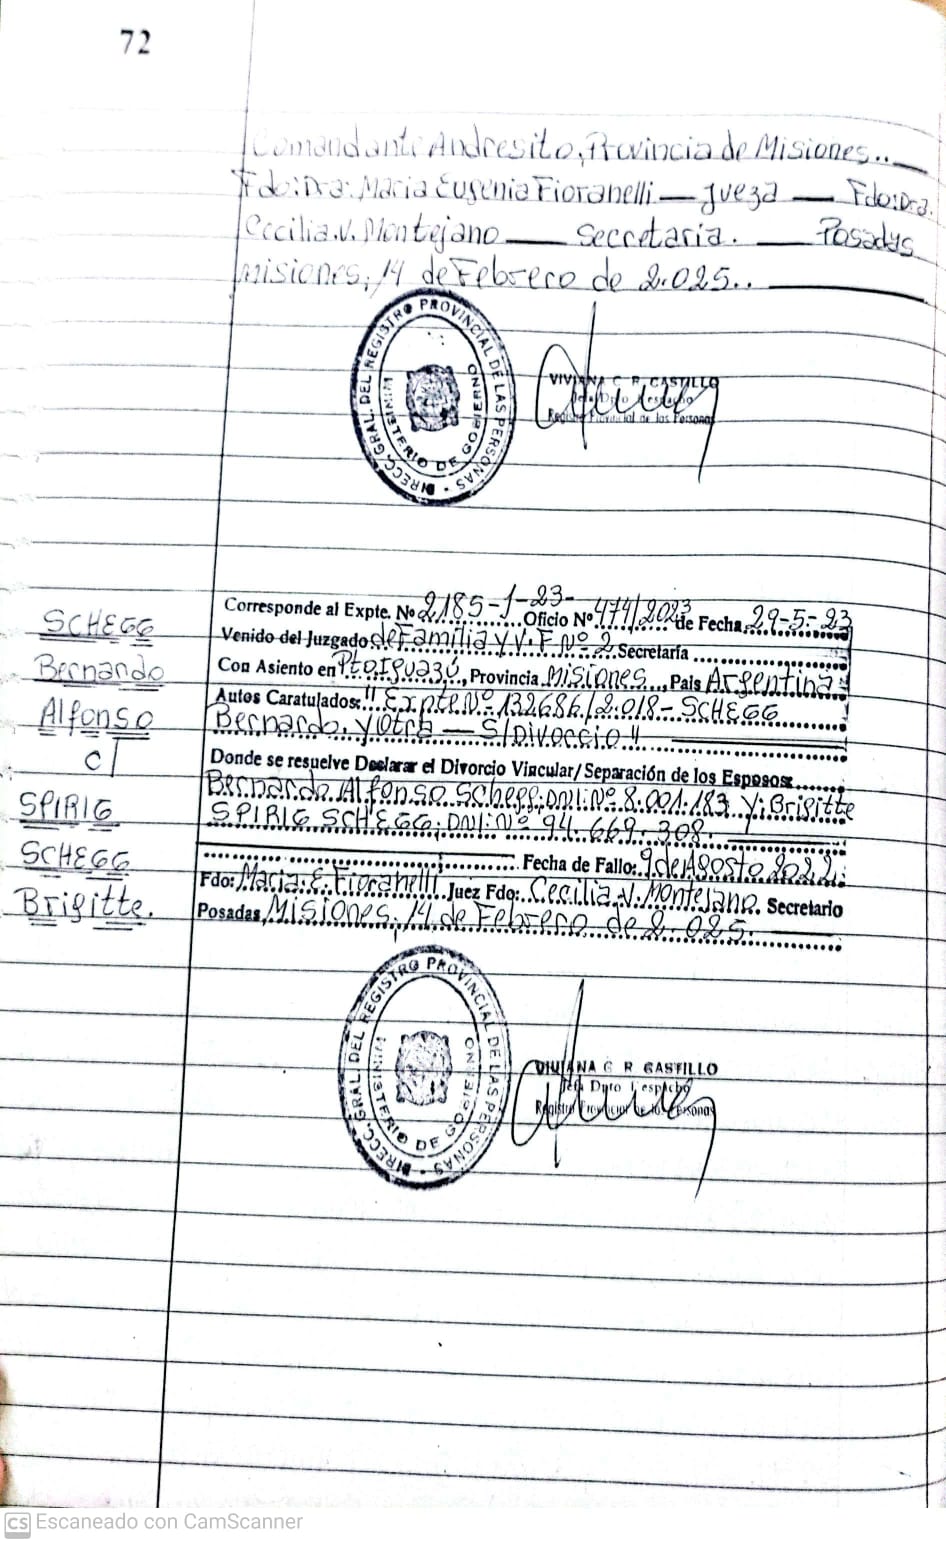 72
Comandante Andresito, Provincia de Misiones..
Fdo: Dra: Maria Eugenia Fioranelli — Jueza — Fdo: Dra.
Cecilia. V. Montejano — Secretaria. — Posadas
Misiones, 14 de Febrero de 2.025..
DIRECC. GRAL. DEL REGISTRO PROVINCIAL DE LAS PERSONAS
MINISTERIO DE GOBIERNO
VIVIANA C. R. CASTILLO
Jefa Dpto Despacho
Registro Provincial de las Personas
Corresponde al Expte. No 2185-J-23- Oficio Nº 474/2023 de Fecha 29-5-23
Venido del Juzgado de Familia y V. F Nº 2 Secretaría
Con Asiento en Pto Iguazú, Provincia Misiones, Pais Argentina
Autos Caratulados: "Expte Nº 132686/2.018 - SCHEGG
Bernardo, y Otra — S/Divorcio"
Donde se resuelve Declarar el Divorcio Vincular/Separación de los Esposos:
Bernardo Alfonso Schegg; DNI: Nº 8.001.183 y: Brigitte
SPIRIG SCHEGG; DNI: Nº 94.669.308.
Fecha de Fallo: 9 de Agosto 2022.
Fdo: Maria. E. Fioranelli Juez Fdo: Cecilia. V. Montejano. Secretario
Posadas, Misiones, 14 de Febrero de 2.025.
SCHEGG
Bernando
Alfonso
c/
SPIRIG
SCHEGG
Brigitte.
DIRECC. GRAL. DEL REGISTRO PROVINCIAL DE LAS PERSONAS
MINISTERIO DE GOBIERNO
VIVIANA C R CASTILLO
Jefa Dpto Despacho
Registro Provincial de las Personas
CS Escaneado con CamScanner